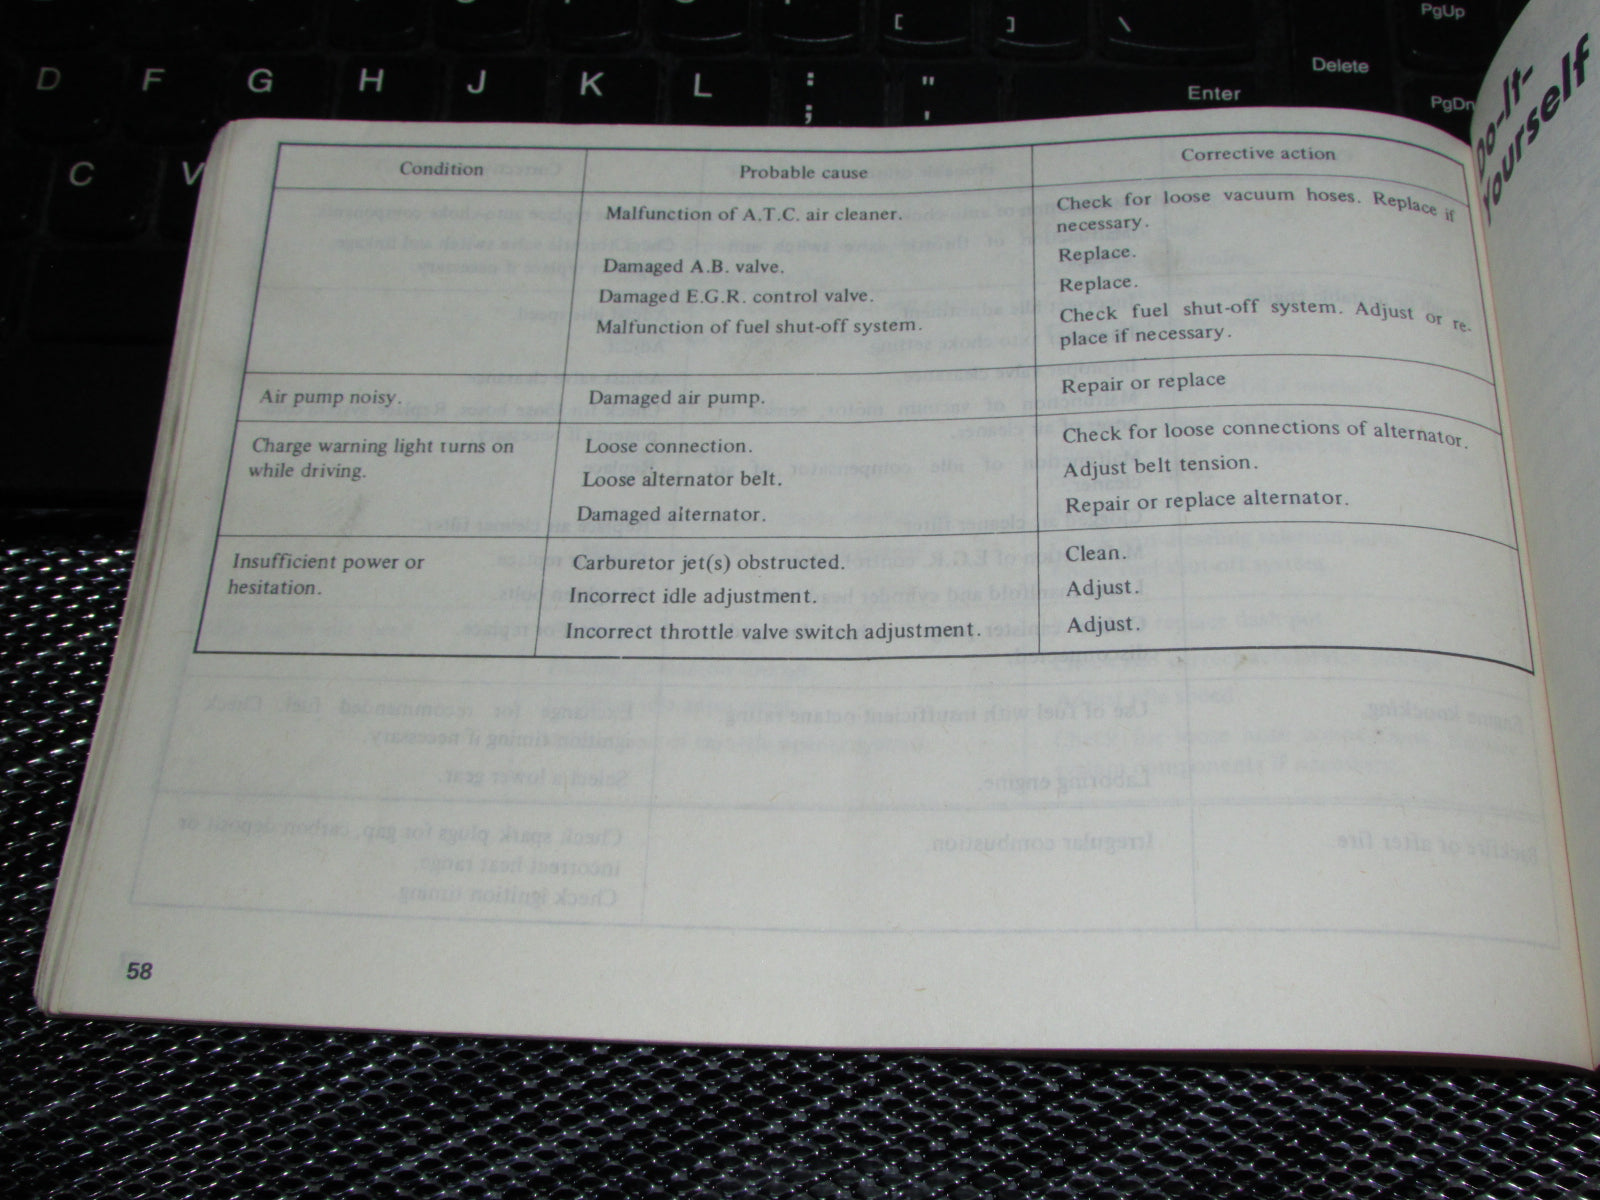 [ ] \ PgUp
D F G H J K L : ; " ' Enter Delete PgDn
C V
Do-It-
Yourself
Condition Probable cause Corrective action
Malfunction of A.T.C. air cleaner. Check for loose vacuum hoses. Replace if
necessary.
Damaged A.B. valve. Replace.
Damaged E.G.R. control valve. Replace.
Malfunction of fuel shut-off system. Check fuel shut-off system. Adjust or re-
place if necessary.
Air pump noisy. Damaged air pump. Repair or replace
Charge warning light turns on Loose connection. Check for loose connections of alternator.
while driving. Loose alternator belt. Adjust belt tension.
Damaged alternator. Repair or replace alternator.
Insufficient power or Carburetor jet(s) obstructed. Clean.
hesitation. Incorrect idle adjustment. Adjust.
Incorrect throttle valve switch adjustment. Adjust.
58